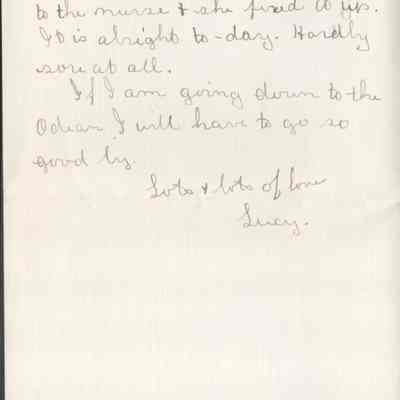 to the nurse & she fixed it up.
It is alright to-day. Hardly
sore at all.
If I am going down to the
Odean I will have to go so
good by.
Lots & lots of love
Lucy.